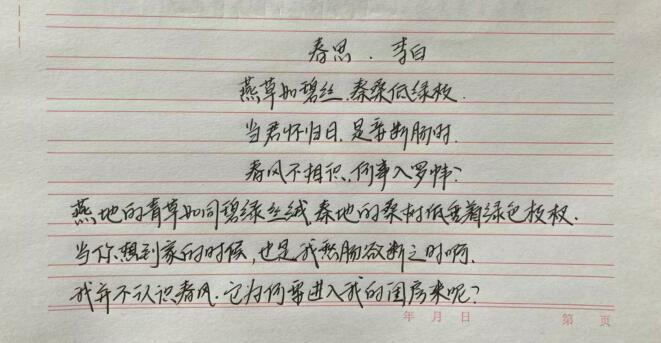 春思.李白
燕草如碧丝.秦桑低绿枝.
当君怀归日.是妾断肠时.
春风不相识.何事入罗帏？
燕地的青草如同碧绿丝绒,秦地的桑树低垂着绿色枝杈.
当你想到家的时候,也是我愁肠欲断之时啊.
我并不认识春风.它为何要进入我的闺房来呢？
年 月 日 第 页